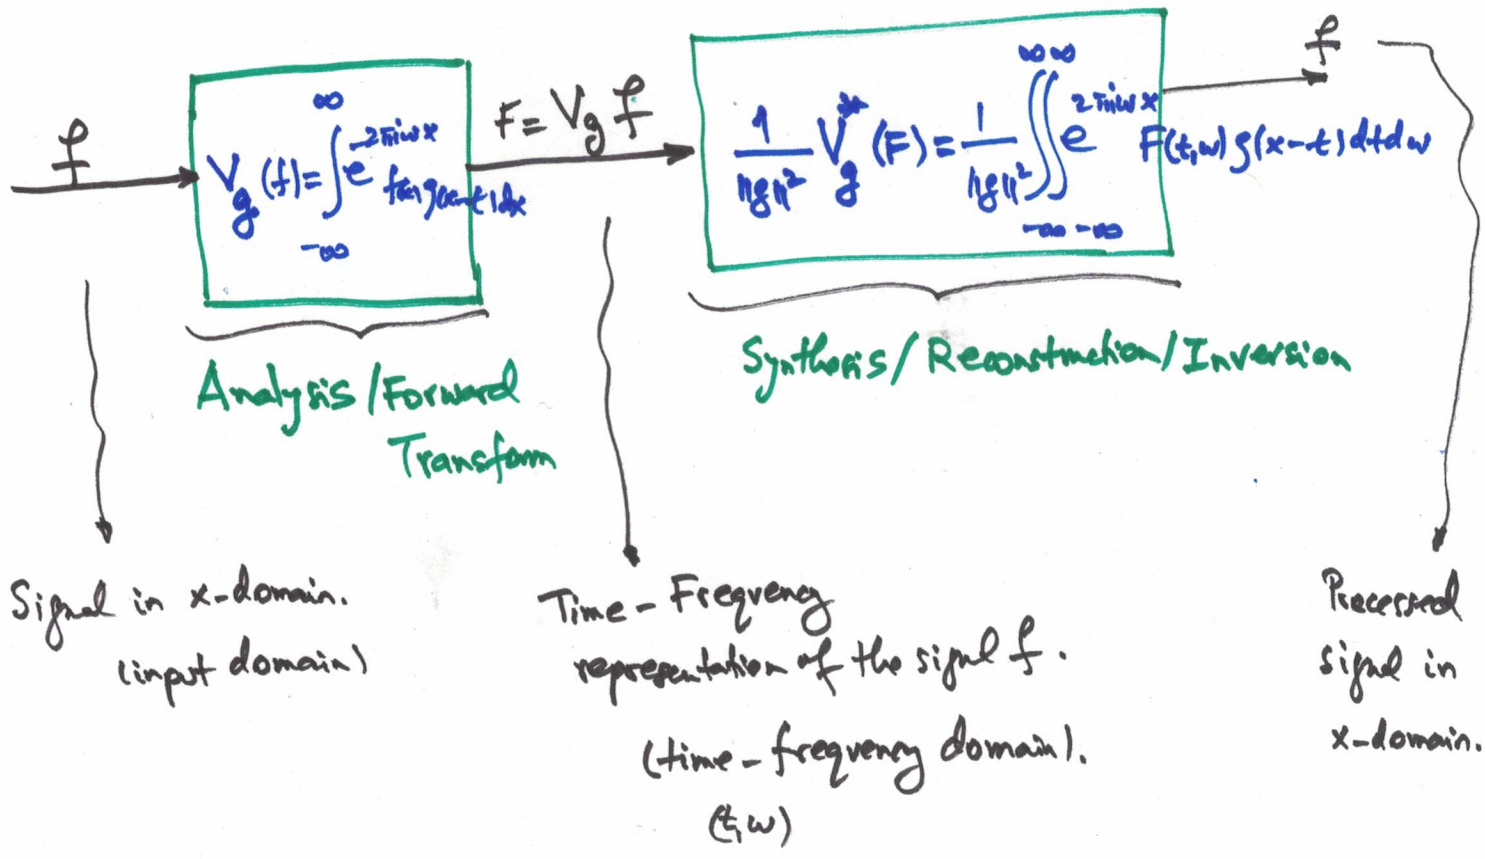 f
V_g (f) = ∫_{-∞}^{∞} e^{-2πiωx} f(x) g(x-t) dx
F = V_g f
\frac{1}{||g||^2} V_g^* (F) = \frac{1}{||g||^2} ∫_{-∞}^{∞} ∫_{-∞}^{∞} e^{2πiωx} F(t,ω) g(x-t) dt dω
f
Analysis/Forward
Transform
Synthesis/Reconstruction/Inversion
Signal in x-domain.
(input domain)
Time-Frequency
representation of the signal f.
(time-frequency domain).
(t,ω)
Processed
signal in
x-domain.